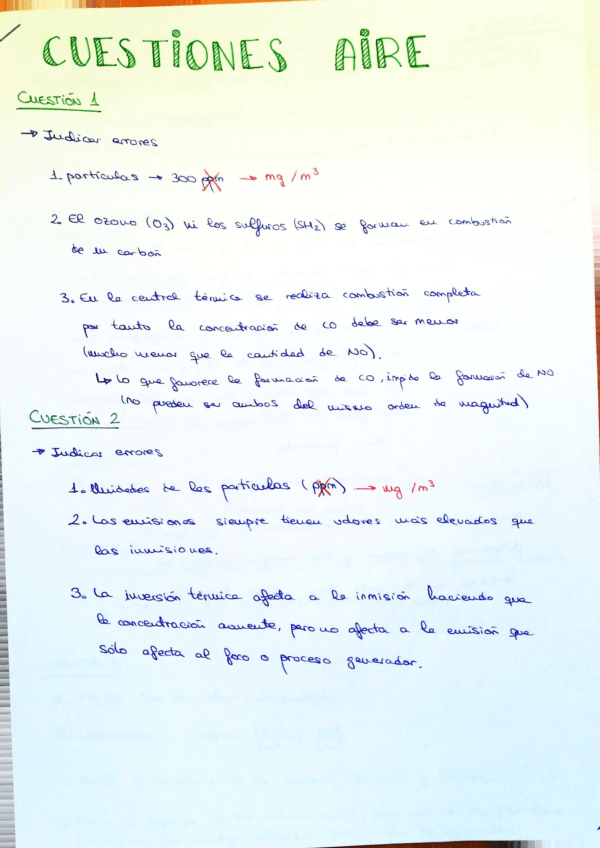 CUESTIONES AIRE
CUESTIÓN 1
→ Indicar errores
1. partículas → 300 ppm → mg/m³
2. El ozono (O₃) ni los sulfuros (SH₂) se forman en combustión
de un carbón
3. En la central térmica se realiza combustión completa
por tanto la concentración de CO debe ser menor
(mucho menor que la cantidad de NO).
↳ Lo que favorece la formación de CO, impde la formación de NO
(no pueden ser ambos del mismo orden de magnitud)
CUESTIÓN 2
→ Indicar errores
1. Unidades de las partículas (ppm) → mg/m³
2. Las emisiones siempre tienen valores más elevados que
las inmisiones.
3. La inversión térmica afecta a la inmisión haciendo que
la concentración aumente, pero no afecta a la emisión que
sólo afecta al foco o proceso generador.